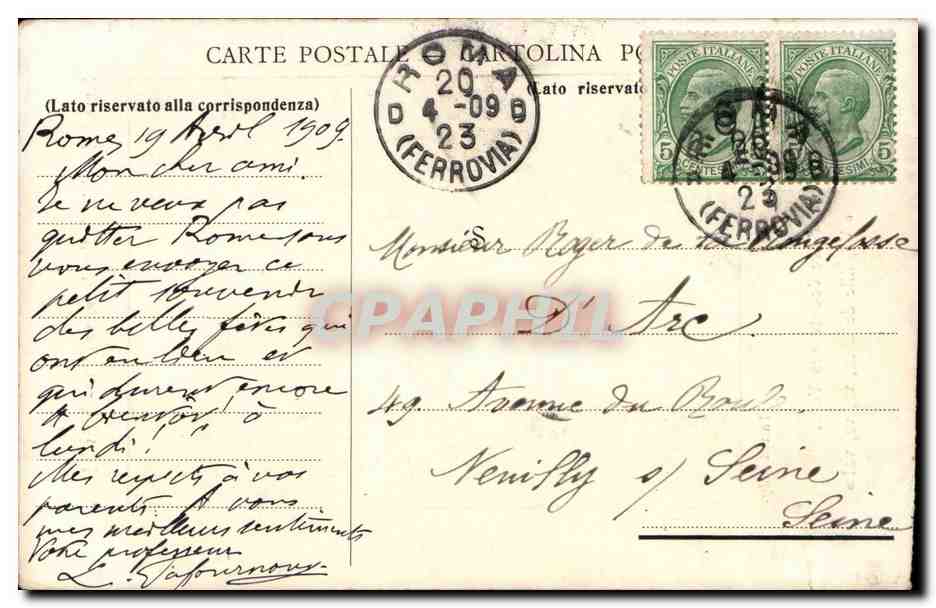 CARTE POSTALE CARTOLINA PO
(Lato riservato alla corrispondenza)
(Lato riservato
ROMA
20
D 4 -09 B
23
(FERROVIA)
POSTE ITALIANE
5 CENTESIMI
POSTE ITALIANE
5 CENTESIMI 5
ROMA
4 -09 B
23
(FERROVIA)
Rome 19 Avril 1909.
Mon cher ami.
Je ne veux pas
quitter Rome sans
vous envoyer ce
petit souvenir
des belles fêtes qui
ont eu lieu et
qui durent encore
A bientôt, à
lundi!
Mes respects à vos
parents. A vous
mes meilleurs sentiments
Votre professeur
L.
S
Monsieur Roger de la
D'Arc
49 Avenue du Roule
Neuilly s/ Seine
Seine
CPAPHIL